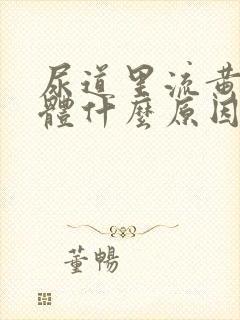 尿道里流黄
體什麼原因
董暢